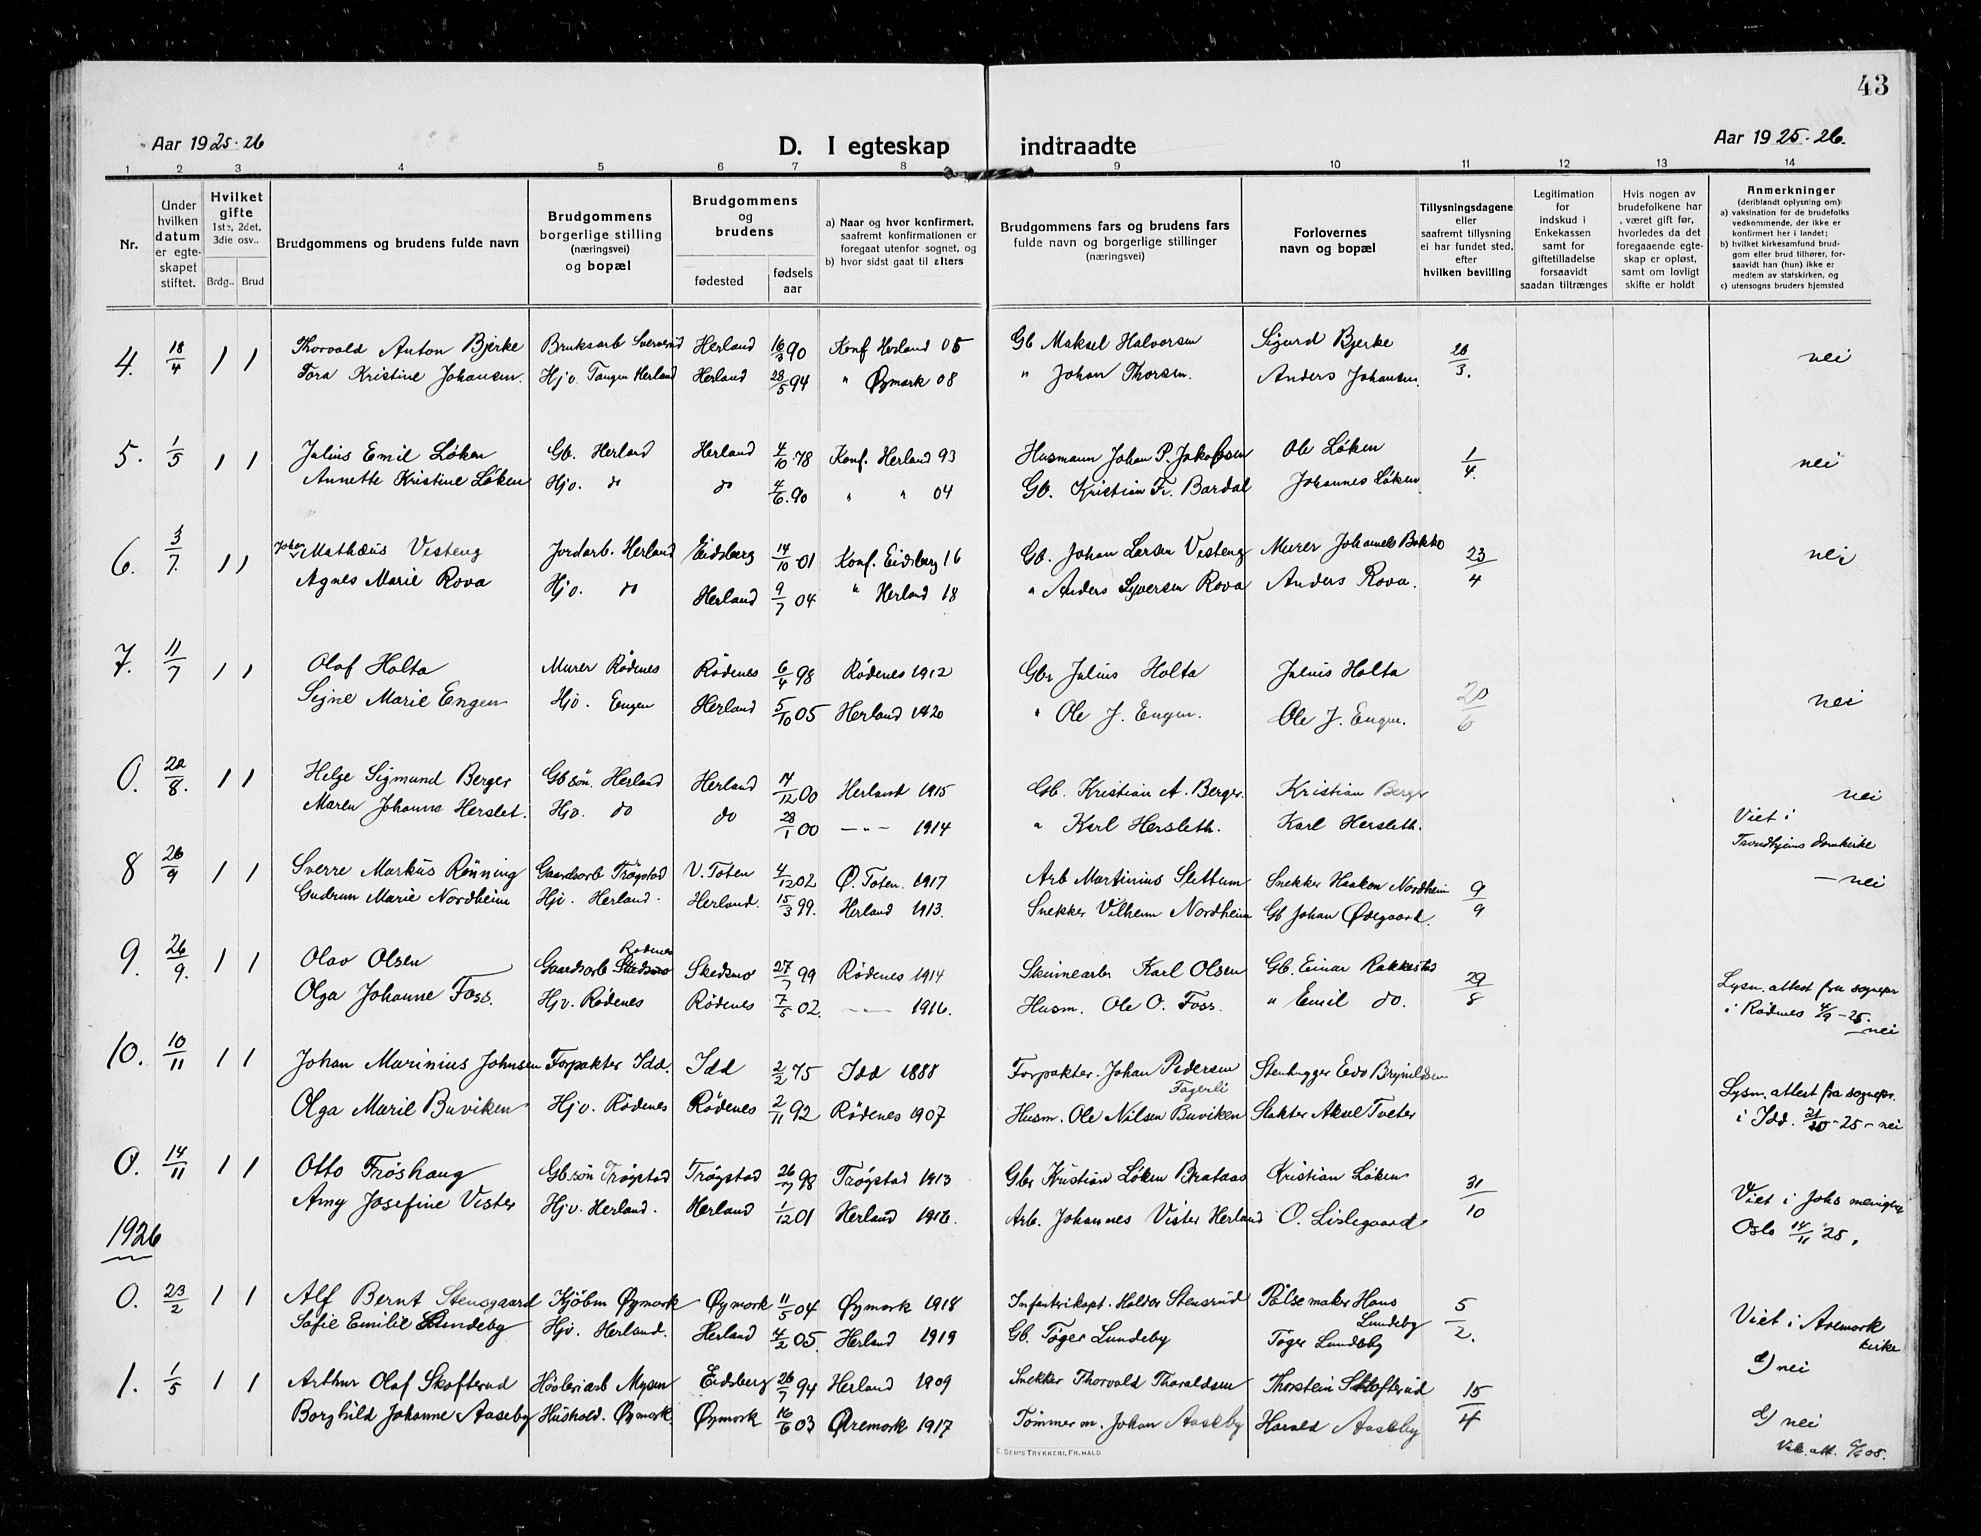 43
Aar 1925-26
D. I egteskap indtraadte
Aar 1925-26.
1 2 3 4 5 6 7 8 9 10 11 12 13 14
Nr.
Under hvilken datum er egteskapet stiftet.
Hvilket gifte 1ste, 2det, 3die osv..
Brdg.. Brud
Brudgommens og brudens fulde navn
Brudgommens borgerlige stilling (næringsvei) og bopæl
Brudgommens og brudens
fødested
fødsels aar
a) Naar og hvor konfirmert, saafremt konfirmationen er foregaat utenfor sognet, og
b) hvor sidst gaat til alters
Brudgommens fars og brudens fars fulde navn og borgerlige stillinger (næringsvei)
Forlovernes navn og bopæl
Tillysningsdagene eller saafremt tillysning ei har fundet sted, efter hvilken bevilling
Legitimation for indskud i Enkekassen samt for giftetilladelse forsaavidt saadan tiltrænges
Hvis nogen av brudefolkene har været gift før, hvorledes da det foregaaende egteskap er opløst, samt om lovligt skifte er holdt
Anmerkninger
(deriblandt oplysning om):
a) vaksination for de brudefolks vedkommende, der ikke er konfirmert her i landet;
b) hvilket kirkesamfund brudgom eller brud tilhører, forsaavidt han (hun) ikke er medlem av statskirken, og
c) utensogns bruders hjemsted
4. 18/4 1 1 Thorvald Anton Bjerke Bruksarb Sververud Herland 16/3 90 Konf Herland 05 Gb Maksel Halvorsen Sigurd Bjerke 26/3. nei
Tora Kristine Johansen. Hjv. Tangen Herland Herland 28/5 94 " Øymark 08 " Johan Thorsen. Anders Johansen.
5. 1/5 1 1 Julius Emil Løken Gb. Herland Herland 4/10 78 Konf. Herland 93 Husmann Johan P. Jakobsen Ole Løken 1/4. nei
Annette Kristine Løken Hjv. do do 4/6. 90 " " 04 Gb. Kristian Fr. Bardal Johannes Løken
6. 3/7. 1 1 Johan Mathæus Vesteng Jordarb. Herland Eidsberg 14/10 01 Konf. Eidsberg 16 Gb. Johan Larsen Vesteng Murer Johannes Bakke 23/4 nei
Agnes Marie Rova Hjv. do Herland 9/7 04 " Herland 18 " Anders Syversen Rova Anders Rova.
7. 11/7 1 1 Olaf Holta Murer Rødenes Rødenes 6/4 98 Rødenes 1912 Gbr Julius Holta Julius Holta 20/6 nei
Signe Marie Engen Hjv. Engen Herland 5/10 05 Herland 1920 " Ole J. Engen. Ole J. Engen.
0. 22/8. 1 1 Helge Sigmund Berger Gbsøn. Herland Herland 17/12 00 Herland 1915 Gb. Kristian A. Berger. Kristian Berger nei
Maren Johanne Herslet. Hjv. do do 28/1 00 —"— 1914 " Karl Hersleth. Karl Hersleth. Viet i
Trondhjems domkirke
8 26/9 1 1 Sverre Markus Rønning Gaardsarb Trøgstad V. Toten 4/12 02 Ø. Toten. 1917 Arb Martinius Slettum Snekker Haakon Nordheim 9/9 — nei
Gudrun Marie Nordheim Hjv. Herland. Herland. 15/3 99. Herland 1913. Snekker Vilhelm Nordheim Gb Johan Ødegaard.
9. 26/9. 1 1 Olav Olsen Gaardsarb Skedsmo Rødenes Skedsmo 27/7 99 Rødenes 1914 Karl Olsen Gb. Einar Rakkestad 29/8 Lysn. attest fra sognepr
Olga Johanne Foss. Hjv. Rødenes Rødenes 7/5 02. —"— 1916. Husm. Ole O. Foss. " Emil do. i Rødenes 4/9 - 25. — nei
10. 10/11 1 1 Johan Marinius Johnsen Forpakter Idd. Idd 2/2 75 Idd 1888 Forpakter. Johan Pedersen Fagerli Stenhugger Brynildsen Lysn. attest fra sognepr.
Olga Marie Buviken Hjv. Rødenes Rødenes 2/11 92 Rødenes 1907 Husm. Ole Nilsen Buviken Slakter Aksel Tveter i Idd. 21/10 - 25 - nei
0. 14/11 1 1 Otto Frøshaug Gbsøn Trøgstad Trøgstad 26/7 98 Trøgstad 1913 Gbr Kristian Løken Brataas Kristian Løken 31/10 Viet i Johs menighet
Amy Josefine Vister Hjv. Herland. Herland 1/12 01 Herland 1916. Arb. Johannes Vister Herland O. Lislegaard Oslo 14/11 25.
1926
0. 23/2 1 1 Alf Bernt Stensgaard Kjøbm Øymark Øymark 11/5 04 Øymark 1918 Infanterikapt. Haldor Stensrud Pølsemaker Hans Lundeby 5/2. Viet i Aremark kirke
Sofie Emilie Lundeby Hjv. Herland. Herland 4/2 05. Herland 1919 Gb. Tøger Lundeby Tøger Lundeby
1. 1/5 1 1 Arthur Olaf Skofterud Høvleriarb Mysen Eidsberg 26/7 94 Herland 1909 Snekker Thorvald Thoraldsen Thorstein Skofterud 15/4 d) nei
Borghild Johanne Aaseby Hushold. Øymark Øymark 16/6 03 Øremark 1917 Tømmerm. Johan Aaseby Harald Aaseby d) nei
Vak. att. 6/6 08.
E. SEM'S TRYKKERI, FR.HALD